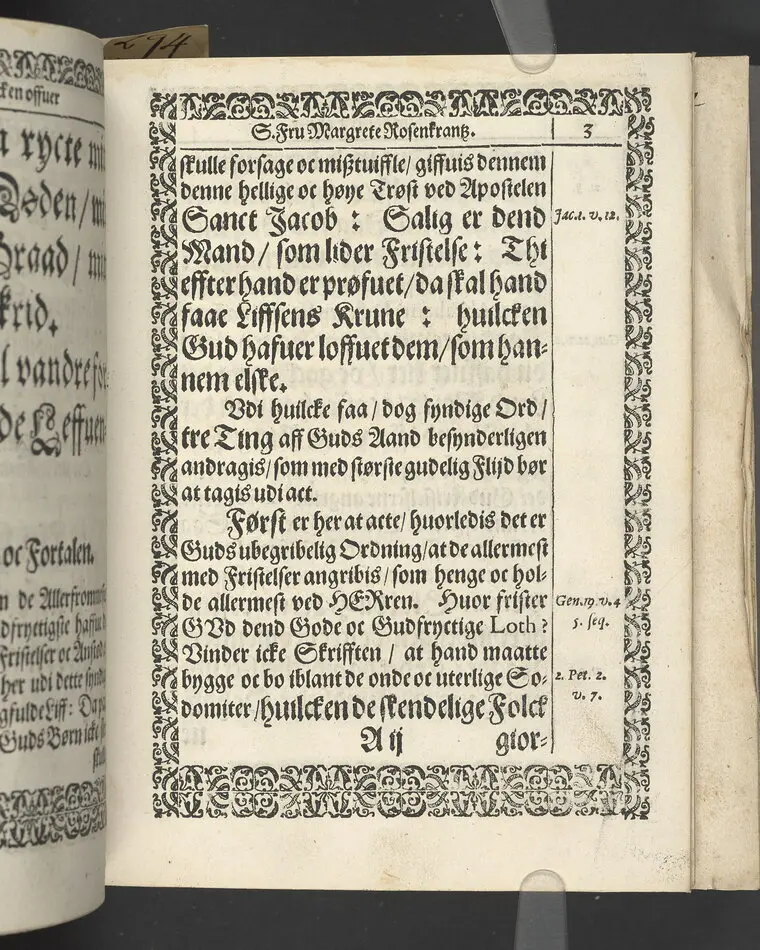 294
ken offuer
n rycte mi
Døden/mi
Graad/mi
krid.
l vandre for
de Leffuen
oc Fortalen.
n de Allerfromm
dfryctigste haffue
Fristelser oc Anstø
her udi dette synd
gfulde Liff: Da pa
Guds Børn icke s
S. Fru Margrete Rosenkrantz. 3
skulle forsage oc mißtuiffle/ giffuis dennem
denne hellige oc høye Trøst ved Apostelen
Sanct Jacob: Salig er dend
Jac.1. v. 12.
Mand/ som lider Fristelse: Thi
effter hand er prøfuet/ da skal hand
faae Liffsens Krune: huilcken
Gud hafuer loffuet dem/ som han-
nem elske.
Vdi huilcke faa/ dog fyndige Ord/
tre Ting aff Guds Aand besynderligen
andragis/ som med største gudelig Flijd bør
at tagis udi act.
Først er her at acte/ huorledis det er
Guds ubegribelig Ordning/ at de allermest
med Fristelser angribis/ som henge oc hol-
de allermest ved HERren. Huor frister
Gen.19. v. 4
GVd dend Gode oc Gudfryctige Loth?
5. seq.
Vinder icke Skrifften/ at hand maatte
bygge oc bo iblant de onde oc uterlige So-
2. Pet. 2.
v. 7.
domiter/ huilcken de skendelige Folck
A ij gior-